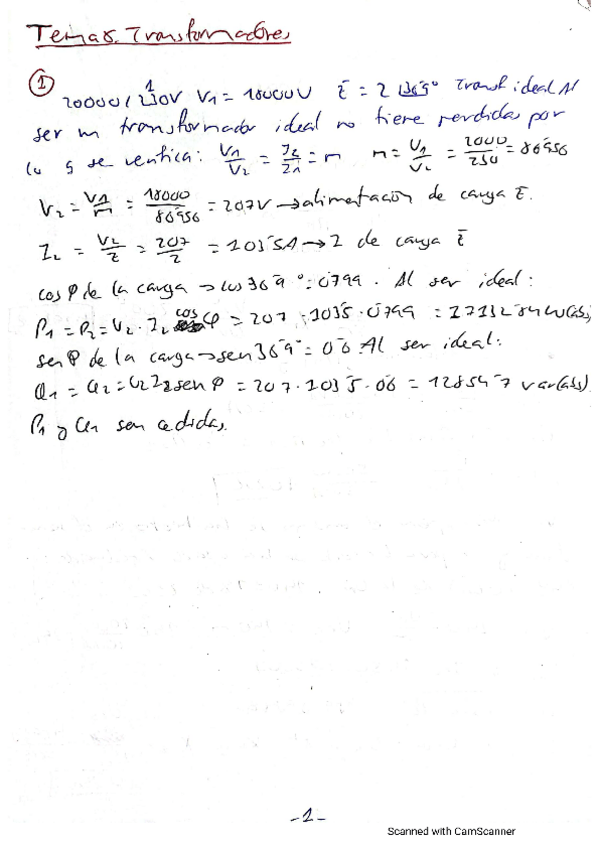 Tema 8. Transformadores
① 20000/230V V1 = 18000V Z̄ = 2 |36'9° Transf ideal Al
ser un transformador ideal no tiene perdidas por
lo q se verifica: V1/V2 = I2/I1 = m m = V1/V2 = 2000/230 = 86'956
V2 = V1/m = 18000/86'956 = 207V → alimentación de carga Z̄.
I2 = V2/Z = 207/2 = 103'5A → I de carga Z̄
cos φ de la carga → cos 36'9° = 0'799. Al ser ideal:
P1 = P2 = V2 · I2 cos φ = 207 · 103'5 · 0'799 = 17132'84W(abs)
sen φ de la carga → sen 36'9° = 0'6. Al ser ideal:
Q1 = Q2 = V2 I2 sen φ = 207 · 103'5 · 0'6 = 12854'7 var(abs)
P1 y Q1 son cedidas.
-1-
Scanned with CamScanner